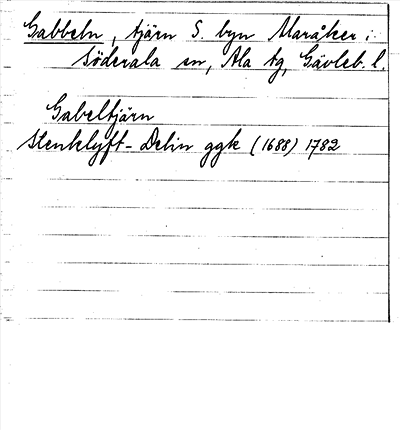 Gabbeln, tjärn S. byn Maråker i
Söderala sn, Ala tg, Gävleb. l.
Gabeltjärn
Stenklyft-Delin ggk (1688) 1782